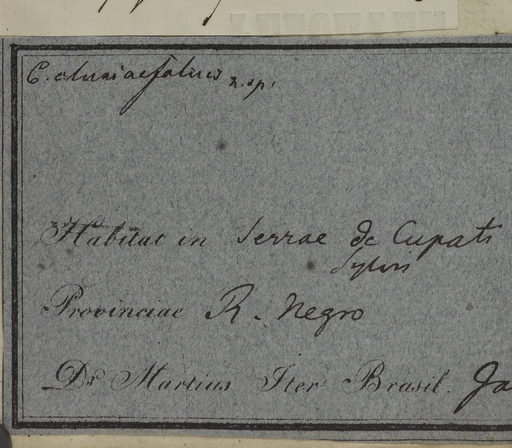 C. clusiaefolius n. sp.
Habitat in Serrae de Cupati
Sylvis
Provinciae R. Negro
Dr. Martius Iter Brasil. Ja